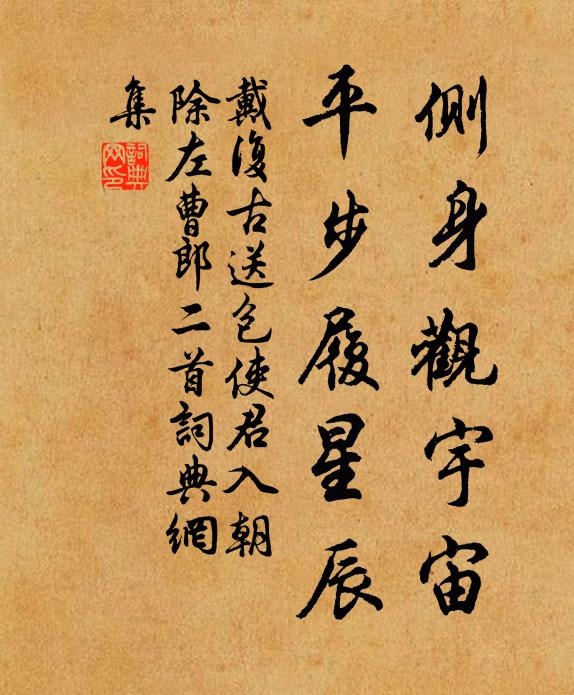 側身觀宇宙
平步履星辰
戴復古送包使君入朝
除左曹郎二首詞典網
集
詞典
网印